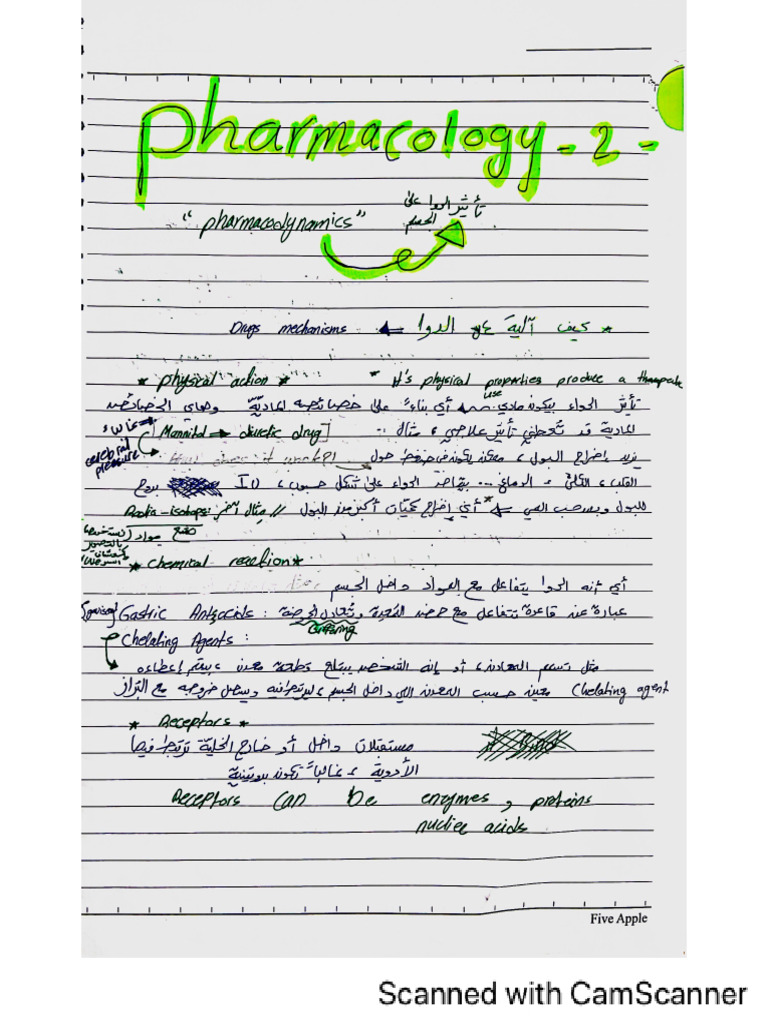 pharmacology - 2 -
"pharmacodynamics"
تأثير الدوا على
الجسم
* كيف آلية عمل الدوا ← Drugs mechanisms
* physical action *
* It's physical properties produce a therapeutic
use
تأثير الدواء بيكون مادي أي بناءً على خصائصه الماديّة وهاي الخصائص
المادية قد تُعطي تأثير علاجي، مثال :- [Mannitol → diuretic drug] غالباً
cerebral
pressure
يزيد إخراج البول، ممكن يكون في ضغط حول
القلب، الكلى، الدماغ ... الدواء على شكل حبوب، بروح
للبول وبسحب المي ← أي إخراج كميّات أكبر من البول // مثال آخر: Radio-isotops
مواد
* chemical reaction *
أي أنه الدوا بتفاعل مع المواد داخل الجسم
Gastric Antacids : عبارة عن قاعدة تتفاعل مع حمض المعدة وتُعادل الحموضة
Buffering
Chelating Agents :
مثل تسمم المعادن، أو إنه الشخص يبتلع قطعة معدن، بيتم إعطاءه
Chelating agent معين حسب المعدن اللي داخل الجسم، ليرتبط فيه ويسهل خروجه مع البراز
* Receptors *
مستقبلات داخل أو خارج الخليّة ترتبط فيها
الأدوية، غالباً تكون بروتينية
Receptors can be enzymes, proteins
nucliec acids
Five Apple
Scanned with CamScanner